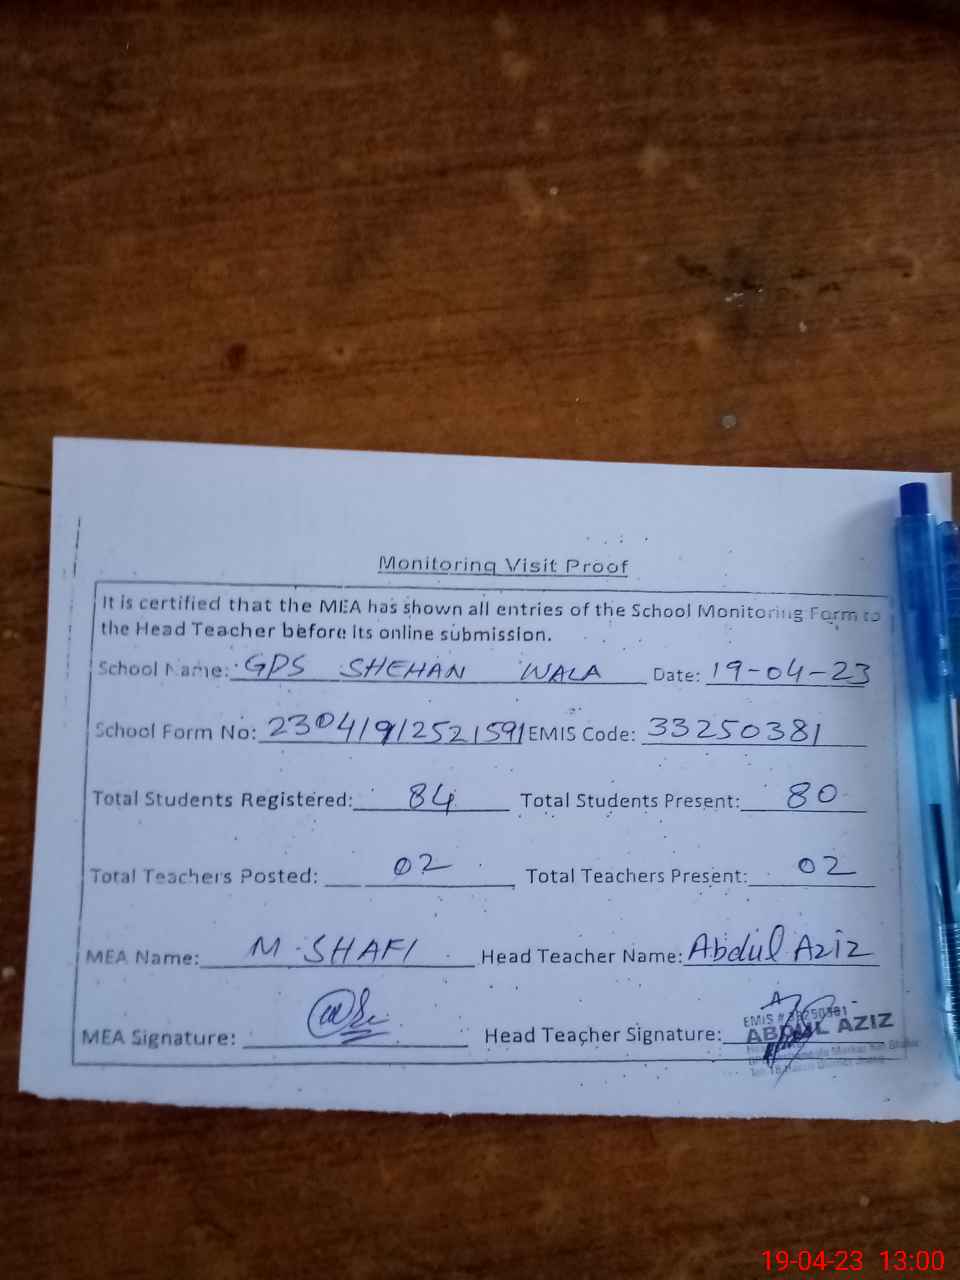 Monitoring Visit Proof
It is certified that the MEA has shown all entries of the School Monitoring Form to
the Head Teacher before its online submission.
School Name: GPS SHEHAN WALA Date: 19-04-23
School Form No: 23041912521591 EMIS Code: 33250381
Total Students Registered: 84 Total Students Present: 80
Total Teachers Posted: 02 Total Teachers Present: 02
MEA Name: M-SHAFI Head Teacher Name: Abdul Aziz
MEA Signature: Head Teacher Signature:
EMIS # 33250381
ABDUL AZIZ
19-04-23 13:00